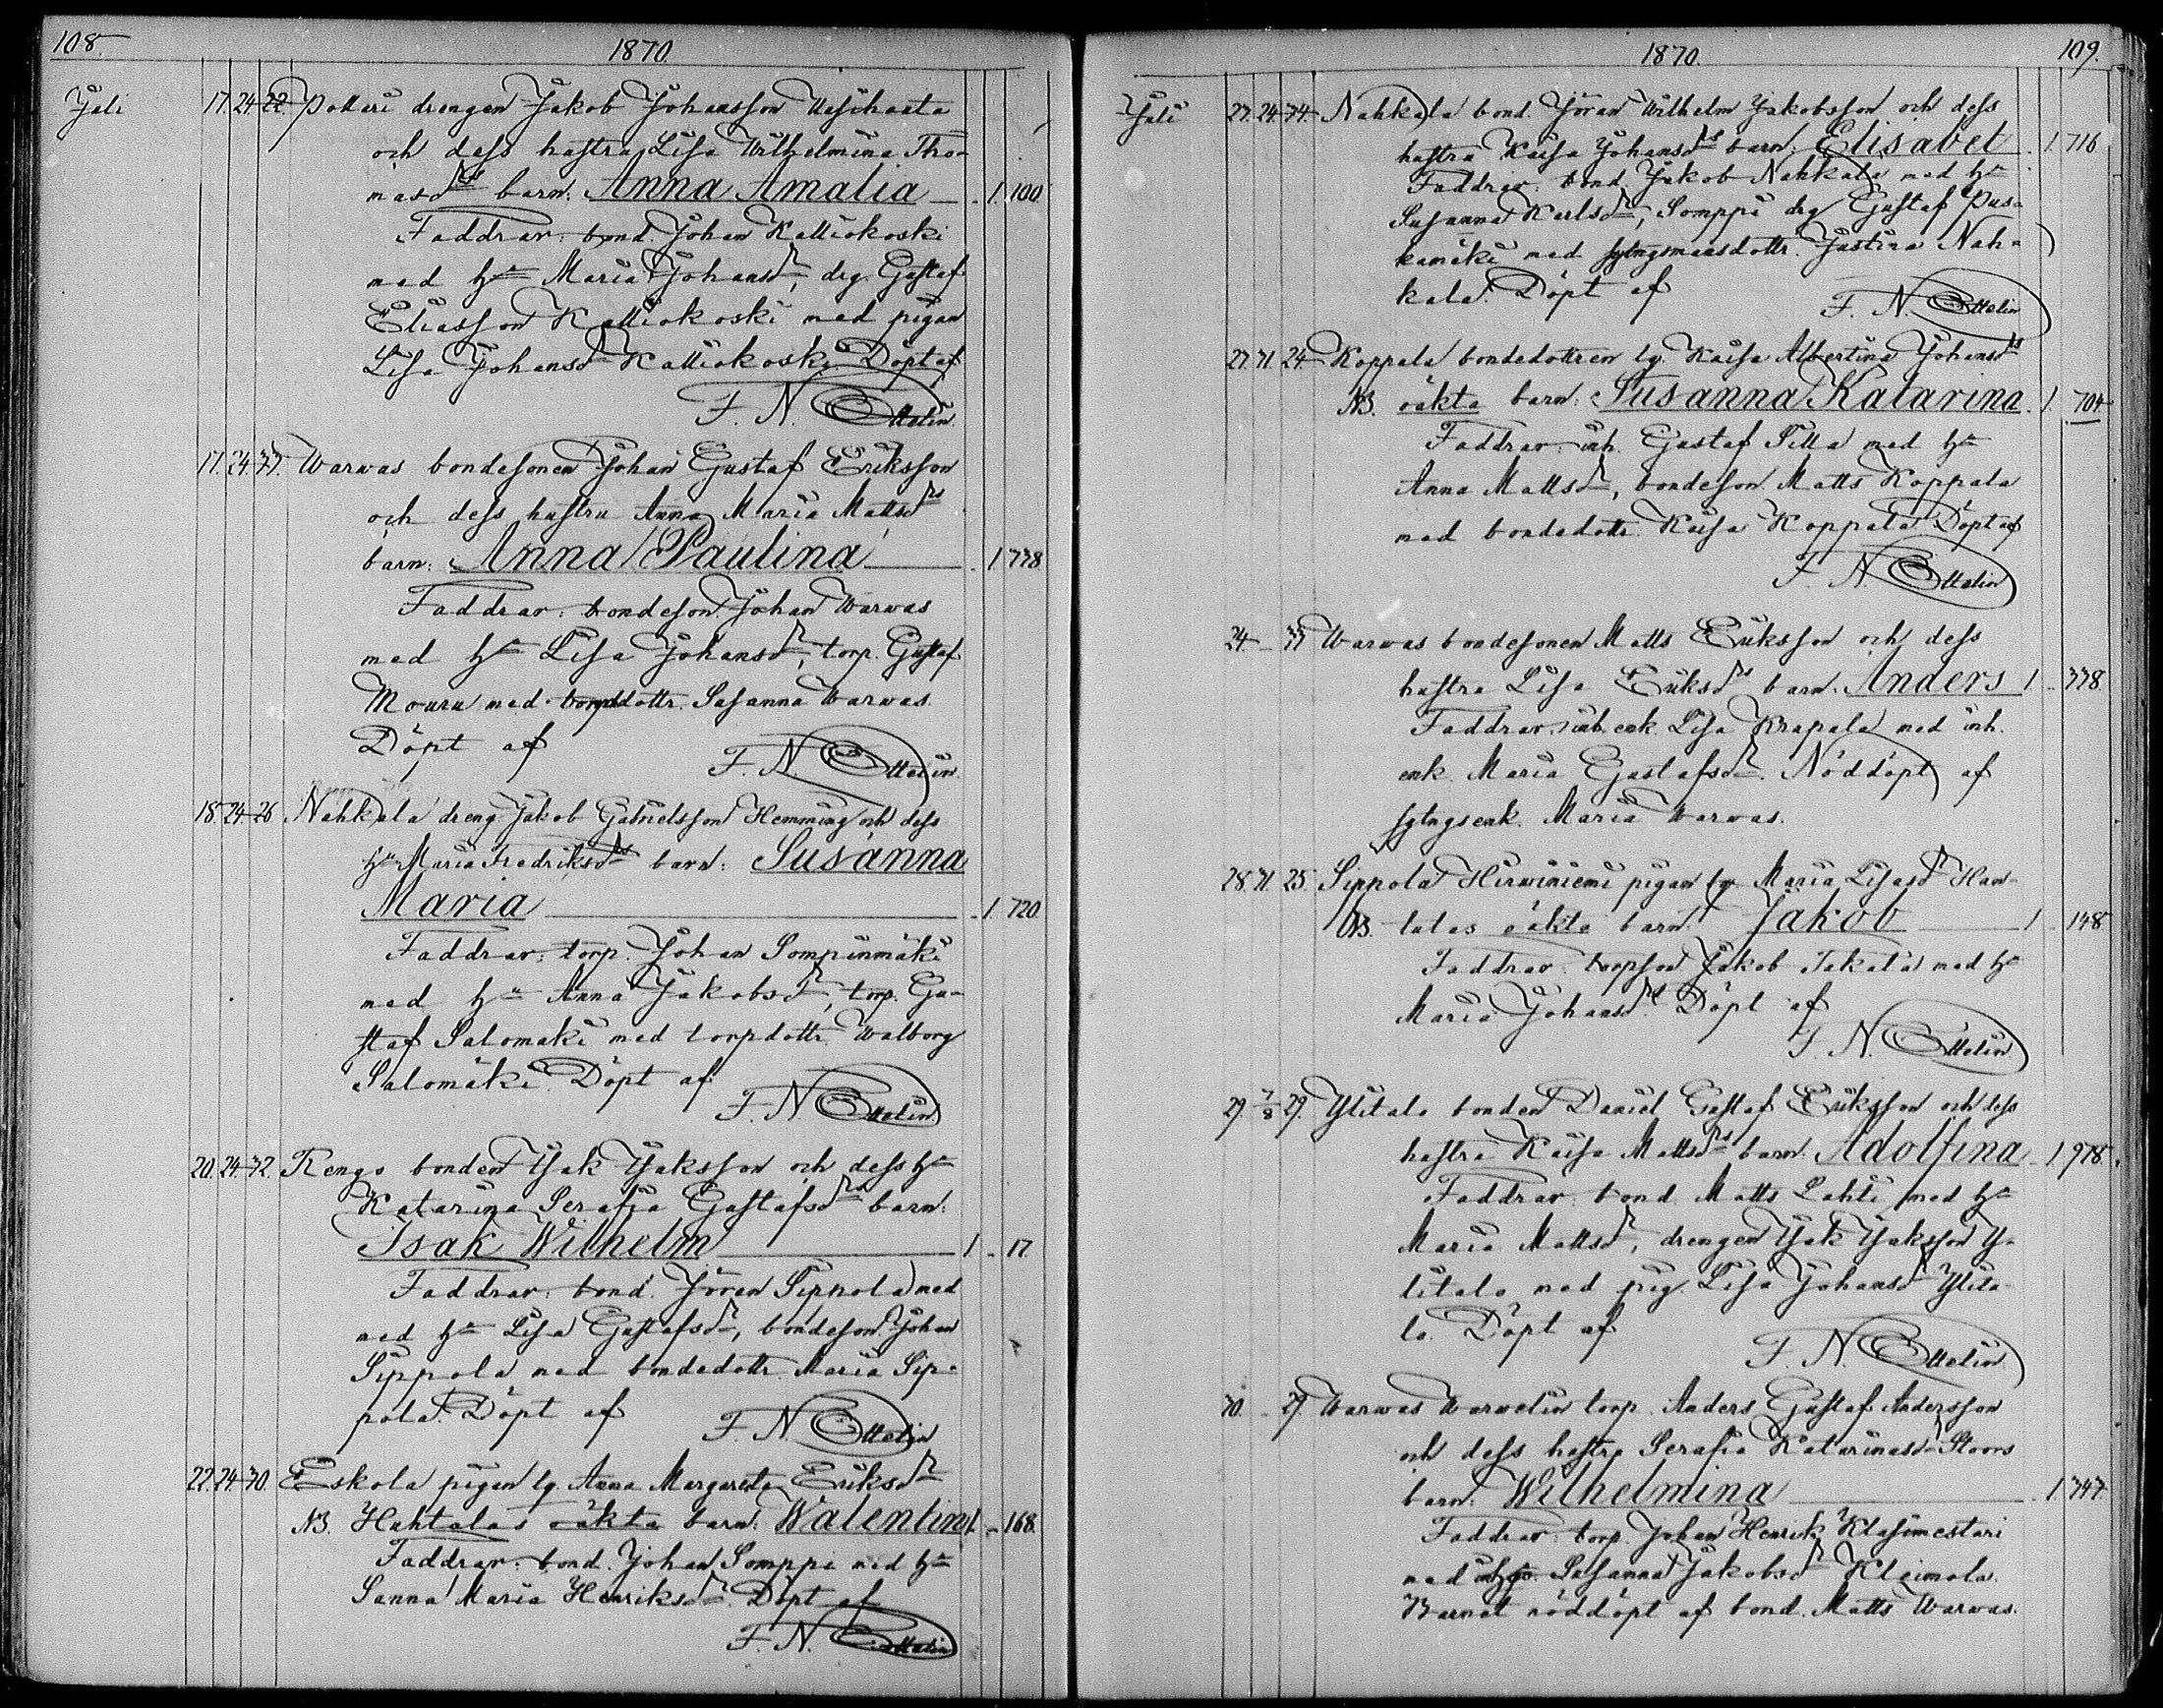 108.
1870.
Juli 17. 24. 22. Potteri drengen Jakob Johansson
och dess hustru Lisa Wilhelmina Tho-
masdrs barn: Anna Amalia 1. 100.
Faddrar: bond. Johan Kalliokoski
med hu Maria Johansdr, drg. Gustaf
Eliasson Kalliokoski med pigan
Lisa Johansdr Kalliokoski. Döpt af
F. N. Ottelin.
17. 24. 33. Warwas bondesonen Johan Gustaf Eriksson
och dess hustru Anna Maria Mattsdrs
barn: Anna Paulina 1 338.
Faddrar: bondeson Johan Warwas
med hu Lisa Johansdr, torp. Gustaf
Mouru med bonddottr. Susanna Warwas.
Döpt af
F. N. Ottelin.
18. 24. 26. Nahkala dreng Jakob Gabrielsson Hemming och dess
hu Maria Fredriksdrs barn: Susanna
Maria 1. 720.
Faddrar: torp. Johan Sompinmäki
med hu Anna Jakobsdr, torp. Gu-
staf Salomäki med torpdottr Walborg
Salomäki. Döpt af
F. N. Ottelin.
20. 24. 32. Rengo bonden Isak Isaksson och dess hu
Katarina Serafia Gustafsdrs barn:
Isak Wilhelm 1 17.
Faddrar: bond. Jöran Sippola med
med hu Lisa Gustafsdr, bondeson Johan
Sippola med bondedottr. Maria Sip-
pola. Döpt af
F. N. Ottelin
22. 24. 30. Eskola pigan lg. Anna Margareta Eriksdr
NB. Huhtalas oäkta barn: Walentin 1. 168.
Faddrar: bond. Johan Somppi med hu
Sanna Maria Henriksdr. Döpt af
F. N. Ottelin
1870.
109.
Juli 23. 24. 34. Nahkala bond. Jöran Wilhelm Jakobsson och dess
hustru Kaisa Johansdrs barn: Elisabet 1 716
Faddrar: bond. Jakob Nahkala med hu
Susanna Karlsdr, Somppi drg Gustaf Pus-
kamäki med sytngsmansdottr. Justina Nah-
kala. Döpt af
F. N. Ottelin
23. 31. 24. Koppala bondedottren lg. Kaisa Albertina Johansdrs
NB. oäkta barn: Susanna Katarina. 1. 704
Faddrar: inh. Gustaf Pitta med hu
Anna Mattsdr, bondeson Matts Koppala
med bondedottr. Kaisa Koppala. Döpt af
F. N. Ottelin
24. 33 Warwas bondesonen Matts Eriksson och dess
hustru Lisa Eriksdrs barn: Anders 1 338.
Faddrar: inh. enk. Lisa Krapala med inh.
enk. Maria Gustafsdr. Nöddöpt af
sytngsenk. Maria Warwas.
28. 31. 25. Sippola Hirwiniemi pigan lg. Maria Lisasdr Han-
NB. talas oäkta barn: Jakob 1 148
Faddrar: torpson Jakob Takala med hu
Maria Johansdr. Döpt af
F. N. Ottelin
29. 7/8 29. Ylitalo bonden Daniel Gustaf Eriksson och dess
hustru Kaisa Mattsdrs barn: Adolfina 1 978.
Faddrar: bond. Matts Lahti med hu
Maria Mattsdr, drengen Isak Isaksson Y-
litalo med pig. Lisa Johansdr Ylita-
lo. Döpt af
F. N. Ottelin
30. 29. Warwas Warwelin torp. Anders Gustaf Andersson
och dess hustru Serafia Katarinasdr Stoors
barn: Wilhelmina 1. 347.
Faddrar: torp. Johan Henrik Klasimestari
med Susanna Jakobsdr Kleimola.
Barnet nöddöpt af bond. Matts Warwas.